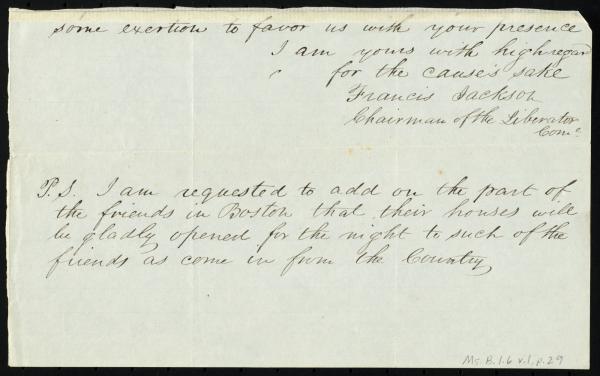 some exertion to favor us with your presence
I am yours with high regard
for the cause's sake
Francis Jackson
Chairman of the Liberator
Come
P.S. I am requested to add on the part of
the friends in Boston that their houses will
be gladly opened for the night to such of the
friends as come in from the Country
Ms. B.1.6 v.1, p.29